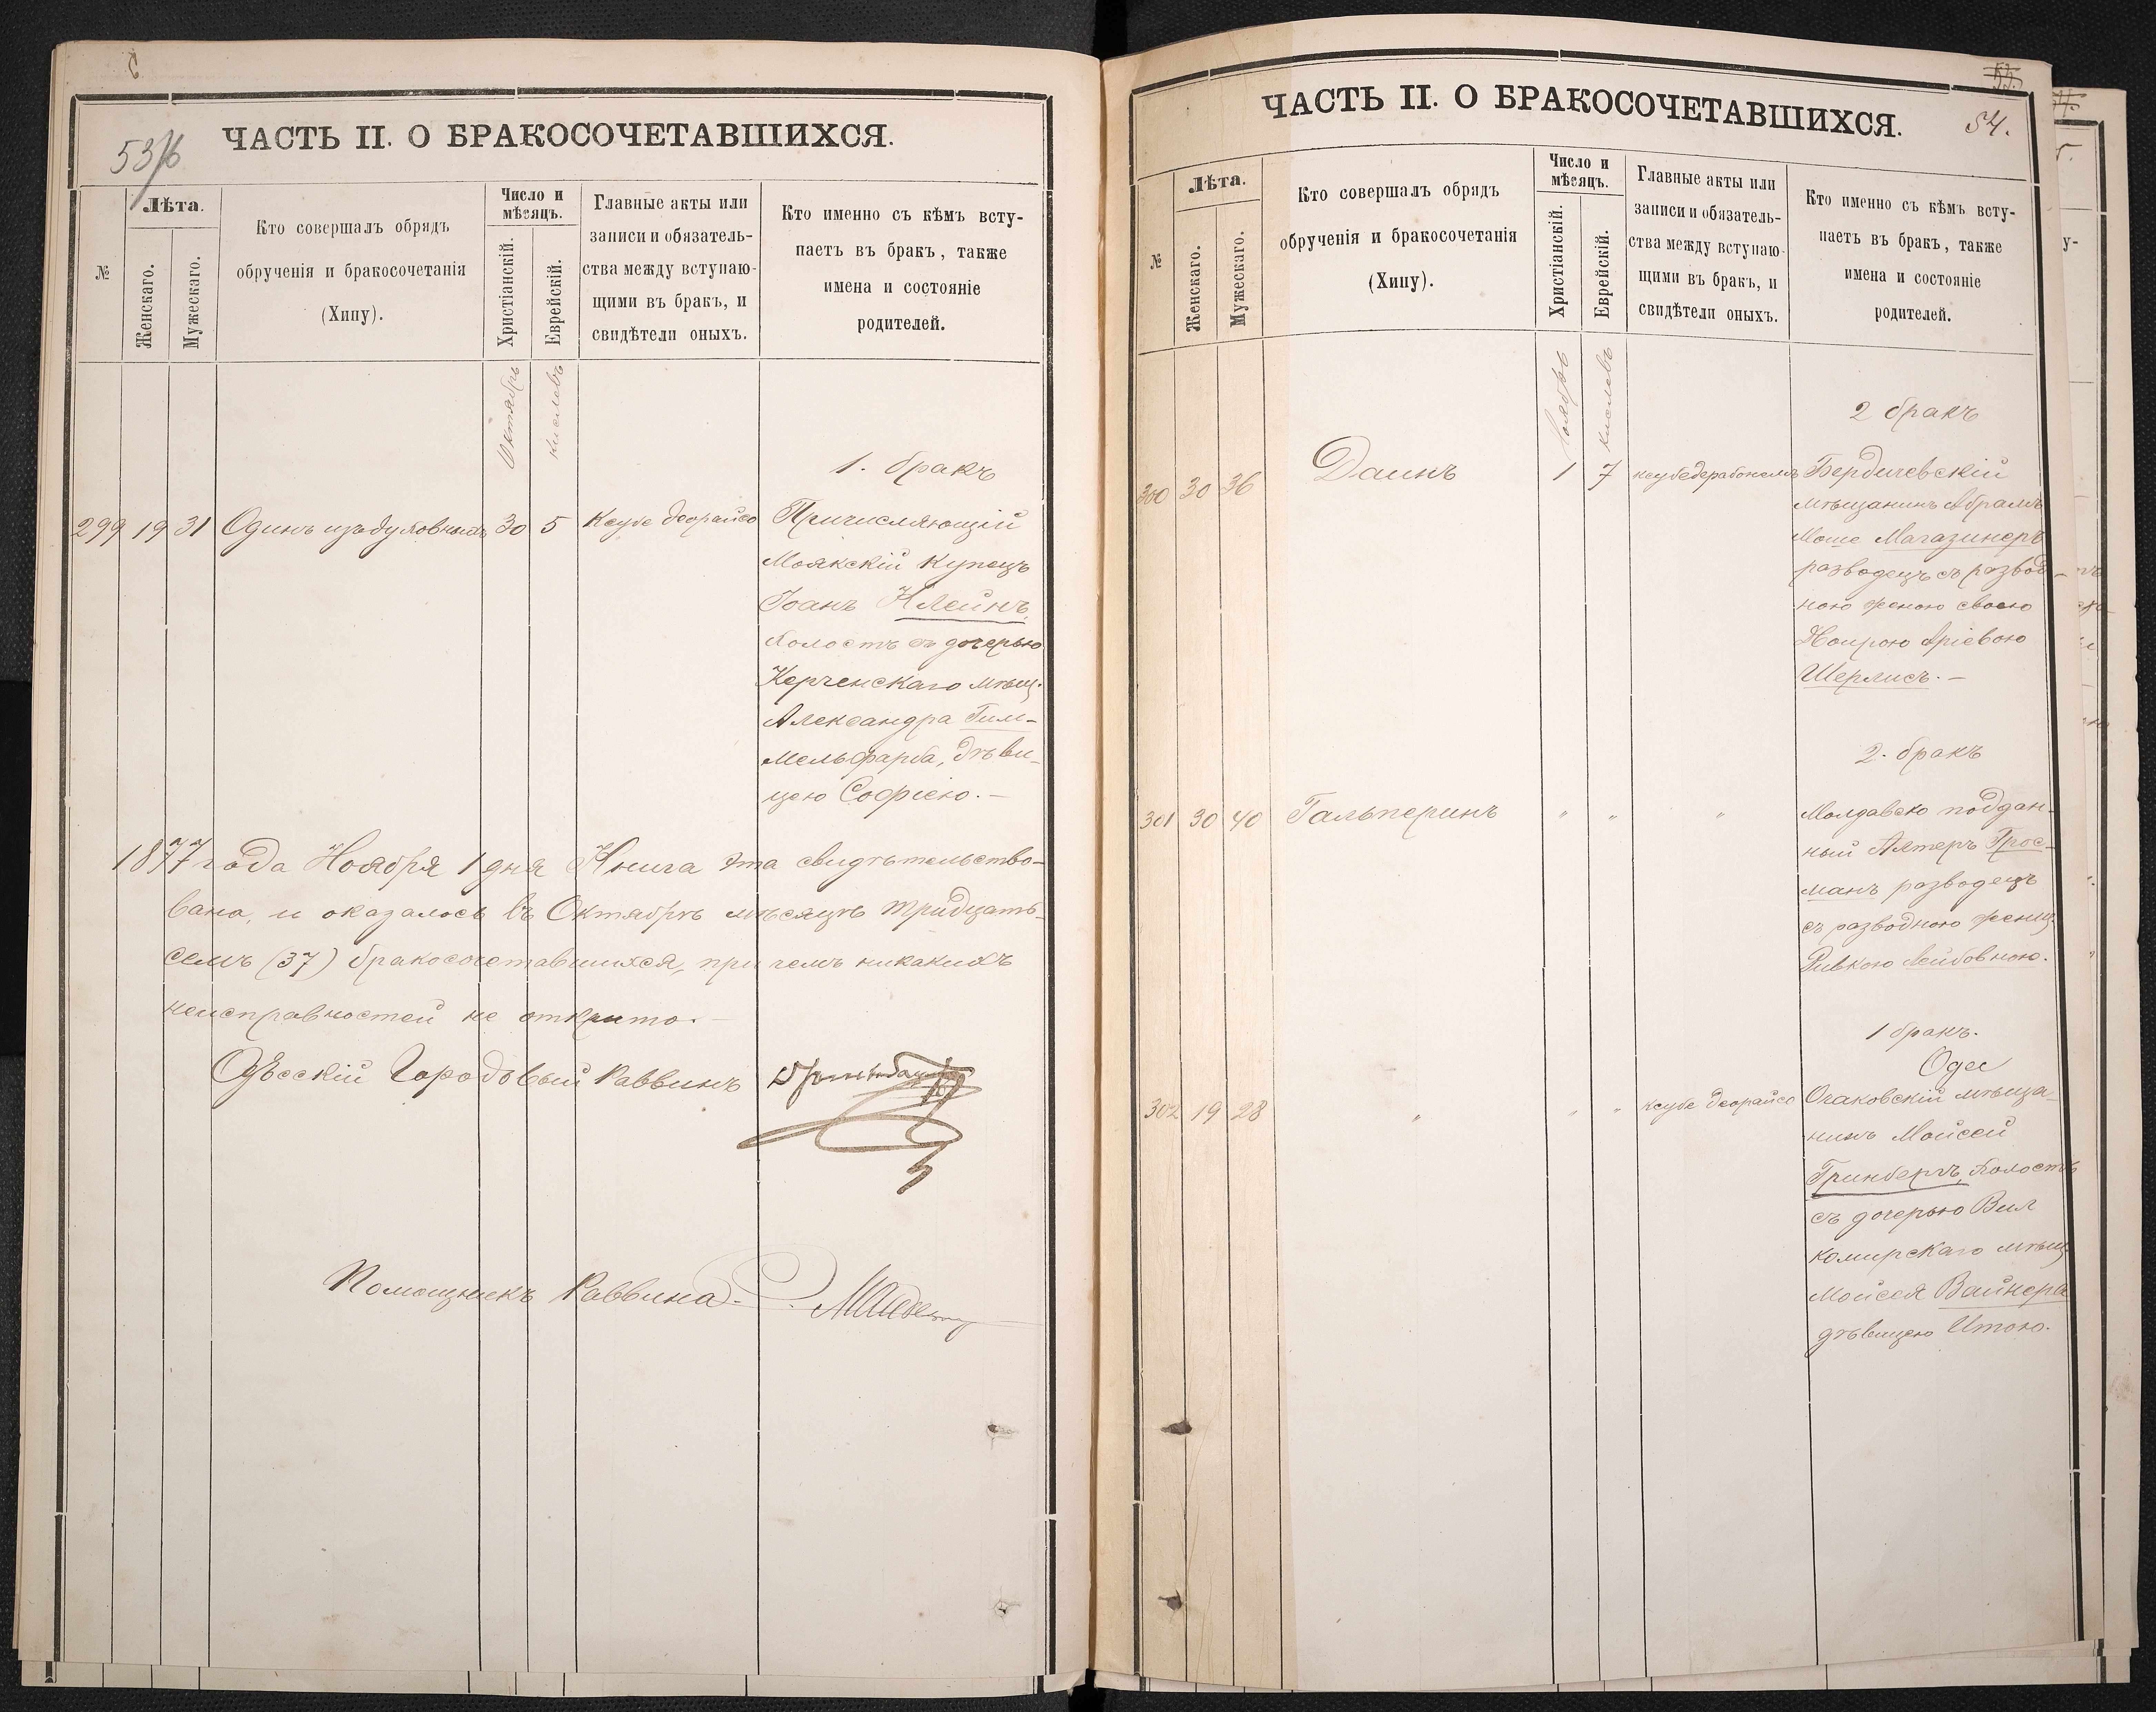 53/6
ЧАСТЬ II. О БРАКОСОЧЕТАВШИХСЯ.
№
Лѣта.
Женскаго.
Мужескаго.
Кто совершалъ обрядъ
обрученія и бракосочетанія
(Хипу).
Число и
мѣсяцъ.
Христіанскій.
Еврейскій.
Главные акты или
записи и обязатель-
ства между вступаю-
щими въ бракъ, и
свидѣтели оныхъ.
Кто именно съ кѣмъ всту-
паетъ въ бракъ, также
имена и состояніе
родителей.
Октябрь
кислевъ
1. бракъ
299 19 31 Одинъ изъ духовныхъ 30 5 Ксубе деорайсо Причисляющій
Маякскій купецъ
Іоанъ Клейнъ,
холостъ съ дочерью
Керченскаго мѣщ.
Александра Гим-
мельфарба, дѣви-
цею Софіею. —
1877 года Ноября 1 дня Книга эта свидѣтельство-
вана, и оказалось въ Октябрѣ мѣсяцѣ тридцать-
семь (37) бракосочетавшихся, при чемъ никакихъ
неисправностей не открыто. —
Одесскій Городовый Раввинъ
Помощникъ Раввина
53.
54.
ЧАСТЬ II. О БРАКОСОЧЕТАВШИХСЯ.
№
Лѣта.
Женскаго.
Мужескаго.
Кто совершалъ обрядъ
обрученія и бракосочетанія
(Хипу).
Число и
мѣсяцъ.
Христіанскій.
Еврейскій.
Главные акты или
записи и обязатель-
ства между вступаю-
щими въ бракъ, и
свидѣтели оныхъ.
Кто именно съ кѣмъ всту-
паетъ въ бракъ, также
имена и состояніе
родителей.
Ноябрь
кислевъ
2 бракъ
300 30 36 Даинъ 1 7 ксубедерабоненъ Бердичевскій
мѣщанинъ Абрамъ
Моше Магазинеръ
разводецъ съ развод-
ною женою своею
Аріевою
Шерлисъ. —
2. бракъ
301 30 40 Гальперинъ " " " Молдавско поддан-
ный Алтеръ Грос-
манъ разводецъ
съ разводною женщ.
Ривкою Лейбовною.
1 бракъ.
Одес
302 19 28 " " " ксубе деорайсо Очаковскій мѣща-
нинъ Мойсей
Гринбергъ, холостъ
съ дочерью Вил
комирскаго мѣщ.
Мойсея Вайнера
дѣвицею Итою.